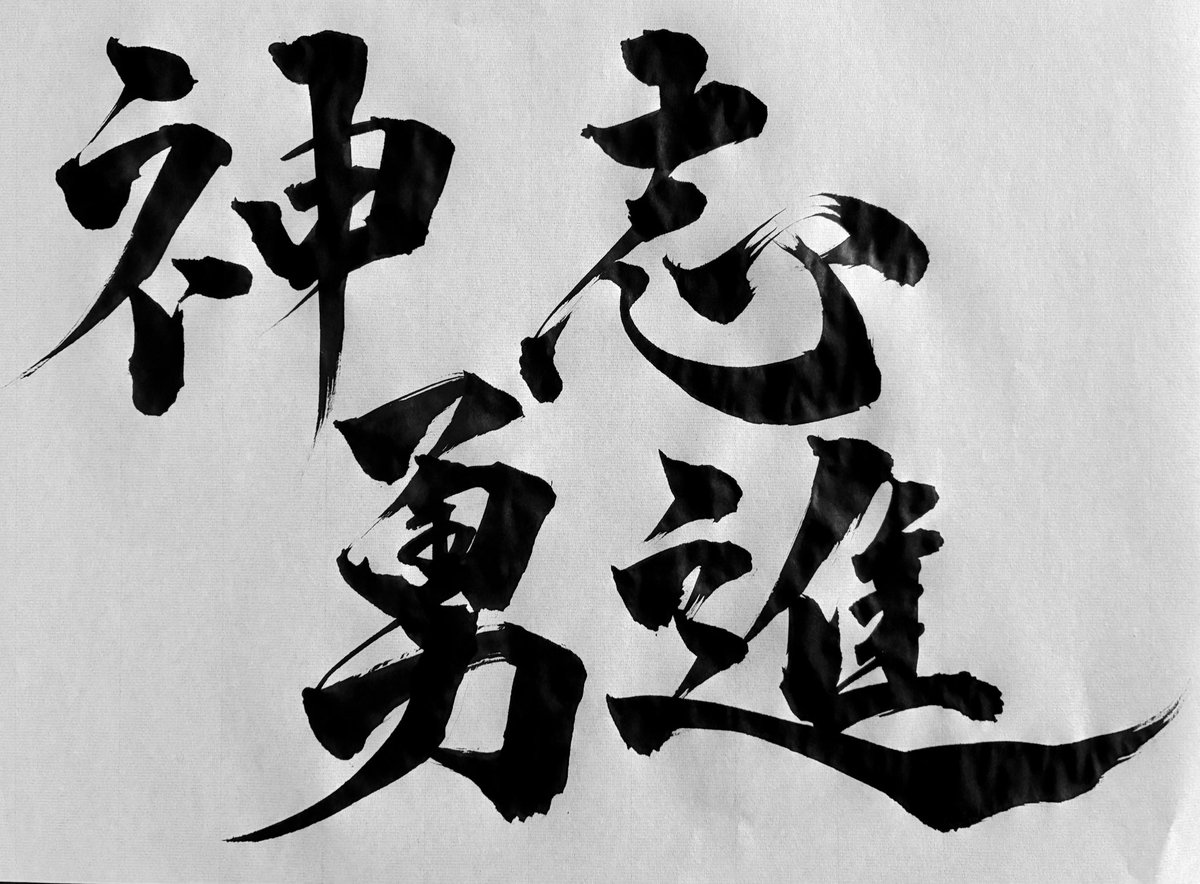 神志
勇進